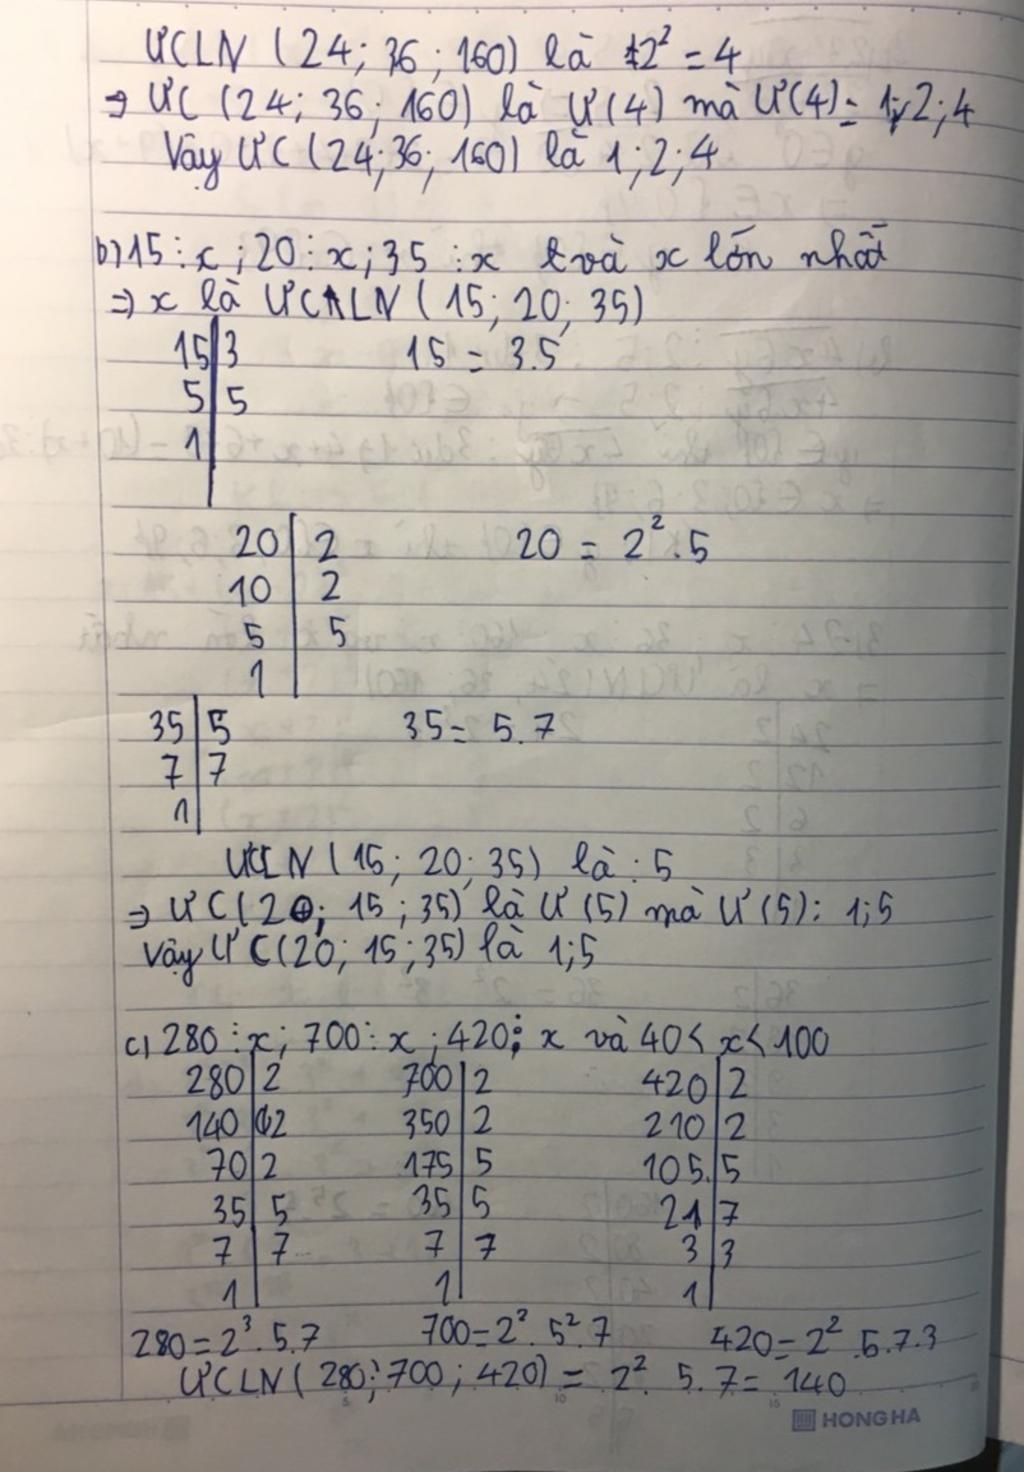 ƯCLN (24; 36; 160) là 2² = 4
⇒ ƯC (24; 36; 160) là Ư(4) mà Ư(4) = 1; 2; 4
Vậy ƯC (24; 36; 160) là 1; 2; 4
b) 15 ⋮ x; 20 ⋮ x; 35 ⋮ x và x lớn nhất
⇒ x là ƯCLN (15; 20; 35)
15 | 3 15 = 3.5
5 | 5
1 |
20 | 2 20 = 2².5
10 | 2
5 | 5
1 |
35 | 5 35 = 5.7
7 | 7
1 |
ƯCLN (15; 20; 35) là: 5
⇒ ƯC (20; 15; 35) là Ư (5) mà Ư (5): 1; 5
Vậy ƯC (20; 15; 35) là 1; 5
c) 280 ⋮ x; 700 ⋮ x; 420 ⋮ x và 40 < x < 100
280 | 2 700 | 2 420 | 2
140 | 2 350 | 2 210 | 2
70 | 2 175 | 5 105 | 5
35 | 5 35 | 5 21 | 7
7 | 7 7 | 7 3 | 3
1 | 1 | 1 |
280 = 2³.5.7 700 = 2².5².7 420 = 2².5.7.3
ƯCLN (280; 700; 420) = 2².5.7 = 140
HONG HA